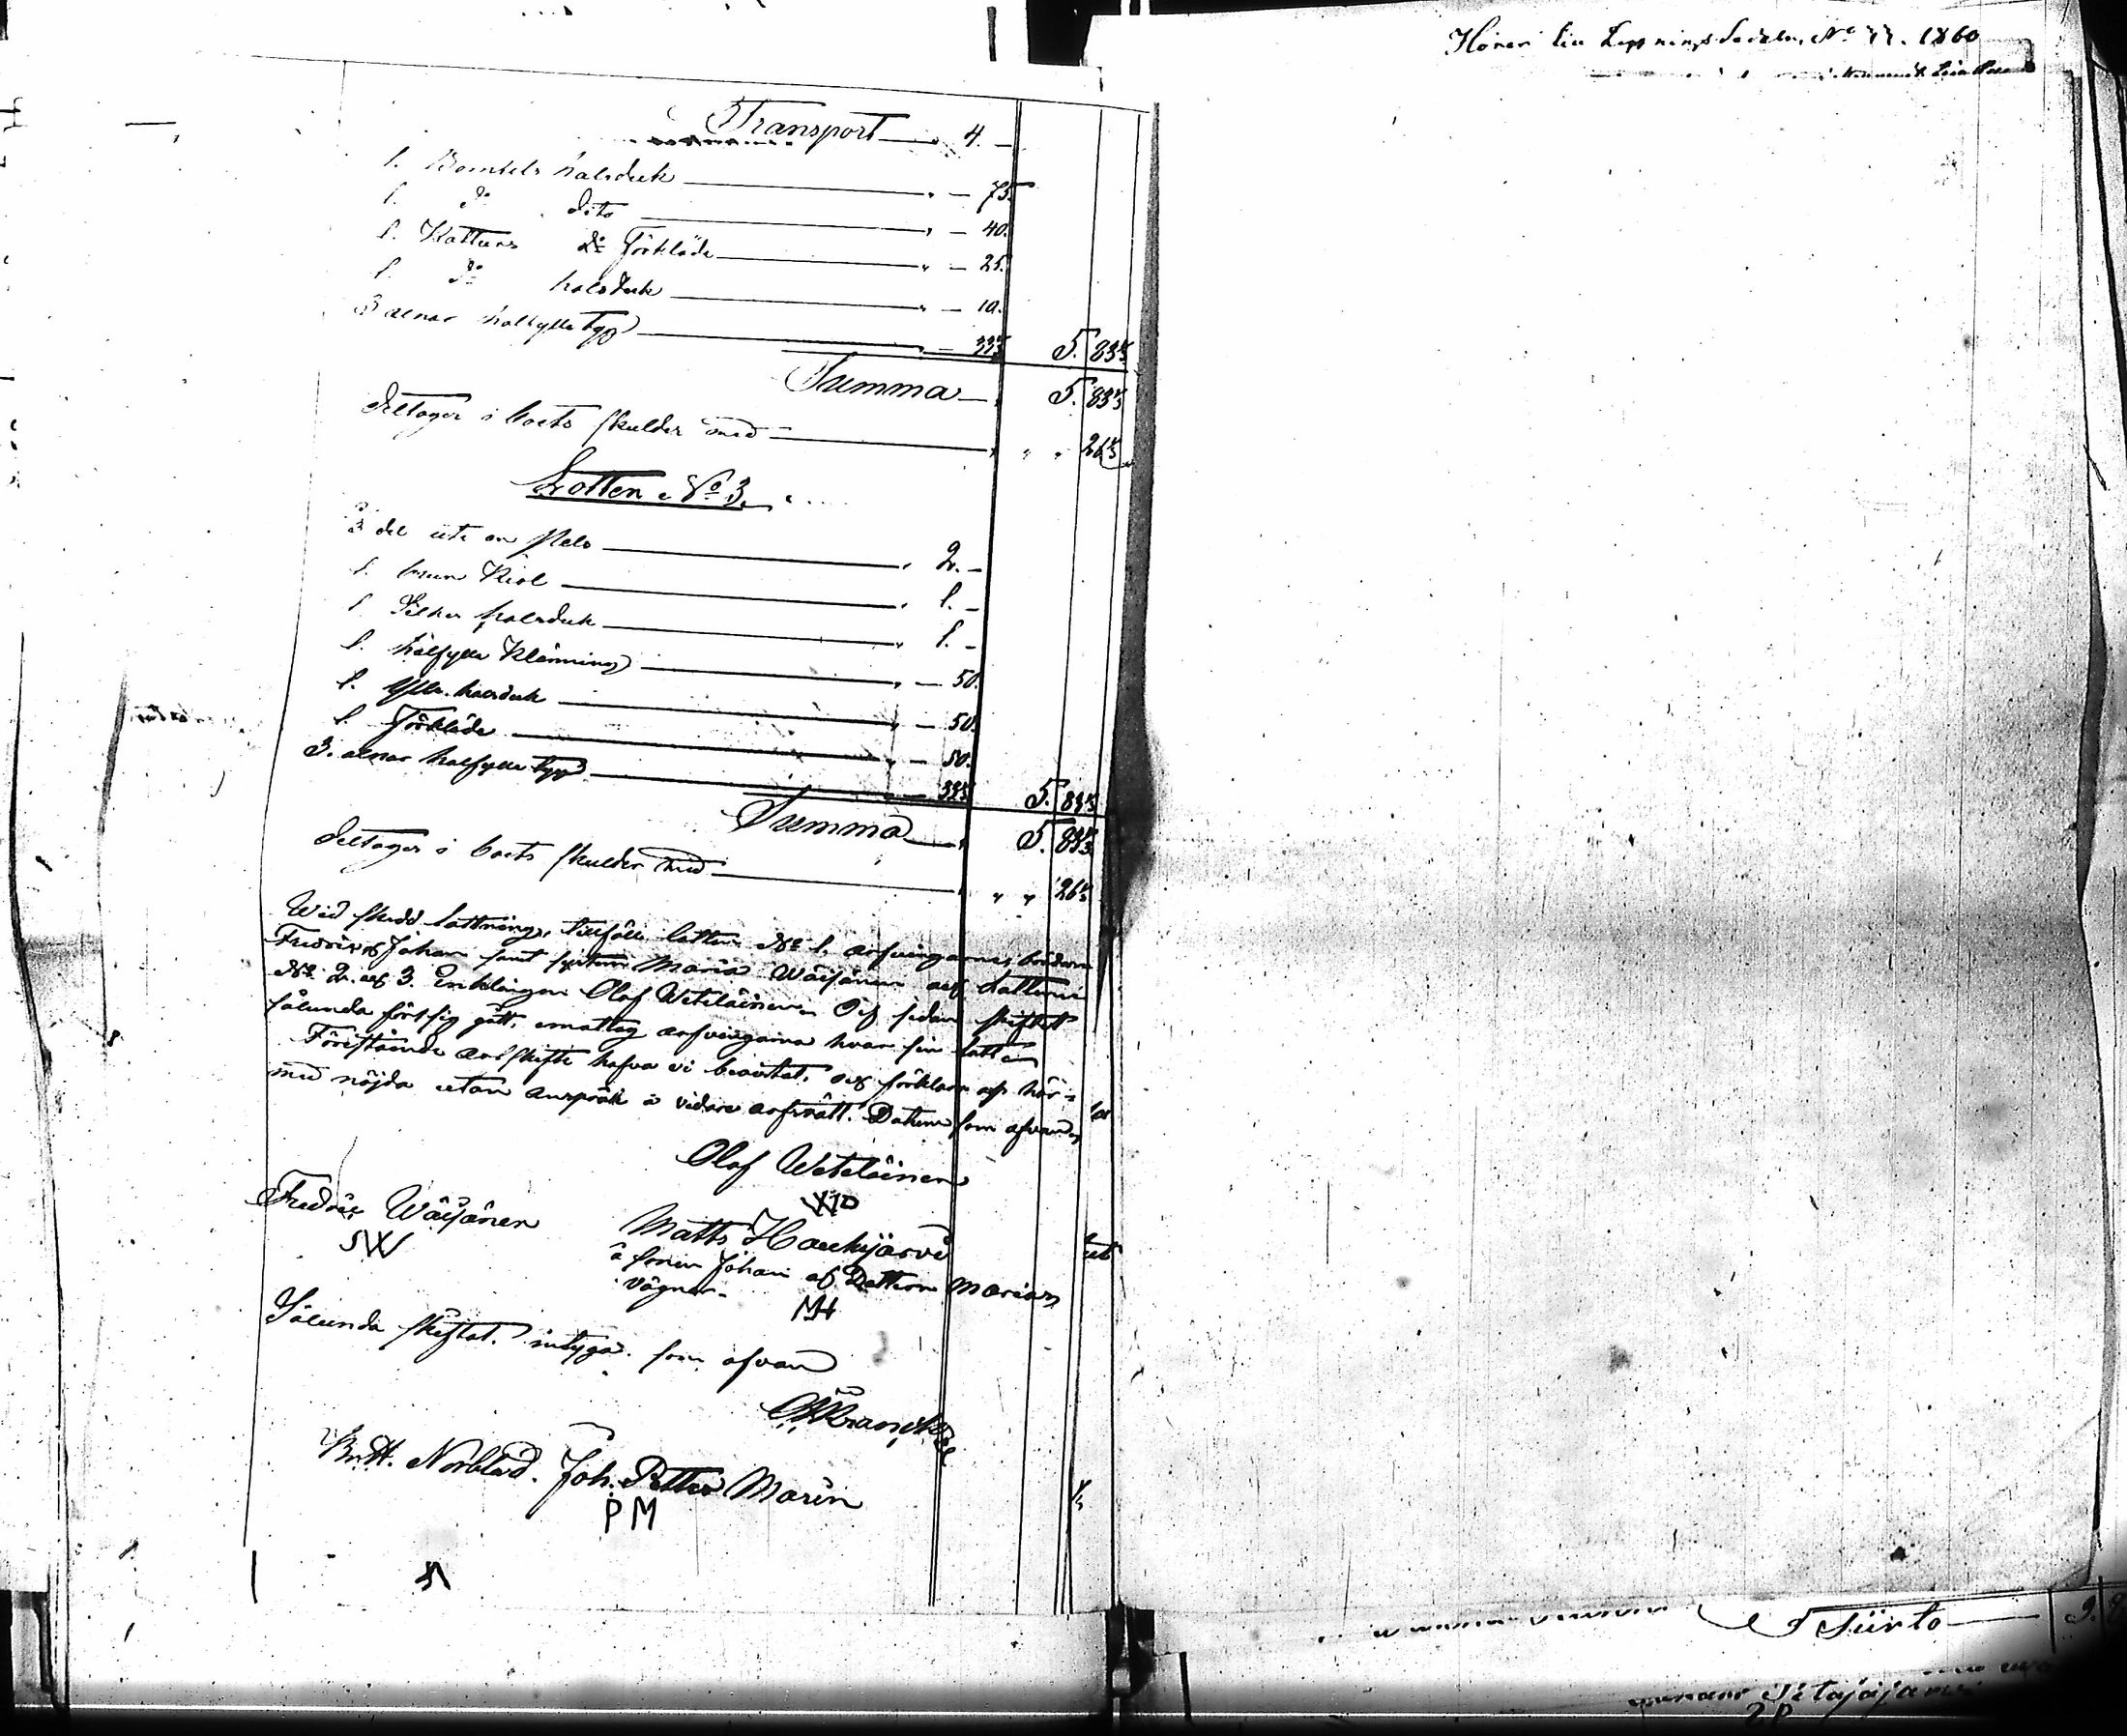 Transport — " 4. —
1. Bomulls halsduk — " — 75.
1. do dito — " — 40.
1. Kattuns do Förkläde — " — 25.
1. do halsduk — " — 10.
3 alnar halfylle tyg — " — 33 1/3 5. 83 1/3
Summa — " 5. 83 1/3
Deltager i boets skulder med — " " " 26 2/3
Lotten No 3.
3 del uti en — " 2. —
1. brun Kiol — " 1. —
1 Silkes halsduk — " 1. —
1. halfylle Klänning — " — 50.
1. Ylle halsduk — " — 50.
1. Förkläde — " — 50.
3. alnar halfylle tyg — " — 33 1/3 5. 83 1/3
Summa — " 5. 83 1/3
Deltager i boets skulder med — " " " 26 2/3
Wid skedd lottning, tillföll lotten No 1. arfvingarne, bröderne
Fredric och Johan samt systern Maria Wäisänen och Lotterne
No 2. och 3. Enklingen Olof Weteläinen. Och sedan skiftet
sålunda för sig gått, emottog arfvingarna hvar sin lott
Förestående arfskifte hafva vi bevistat, och förklara oss här-
med nöjda utan anspråk å vidare arfsrätt. Datum som ofvan
Olof Weteläinen
Fredric Wäisänen
SW
Matts Haukijärvi
å sonen Johan och Dottern Marias
vägnar.
MH
Sålunda skiftat, intygar som ofvan
Matt. Norblad. Joh. Petter Marin
PM
Hörer till No 77. 1860
Siirto